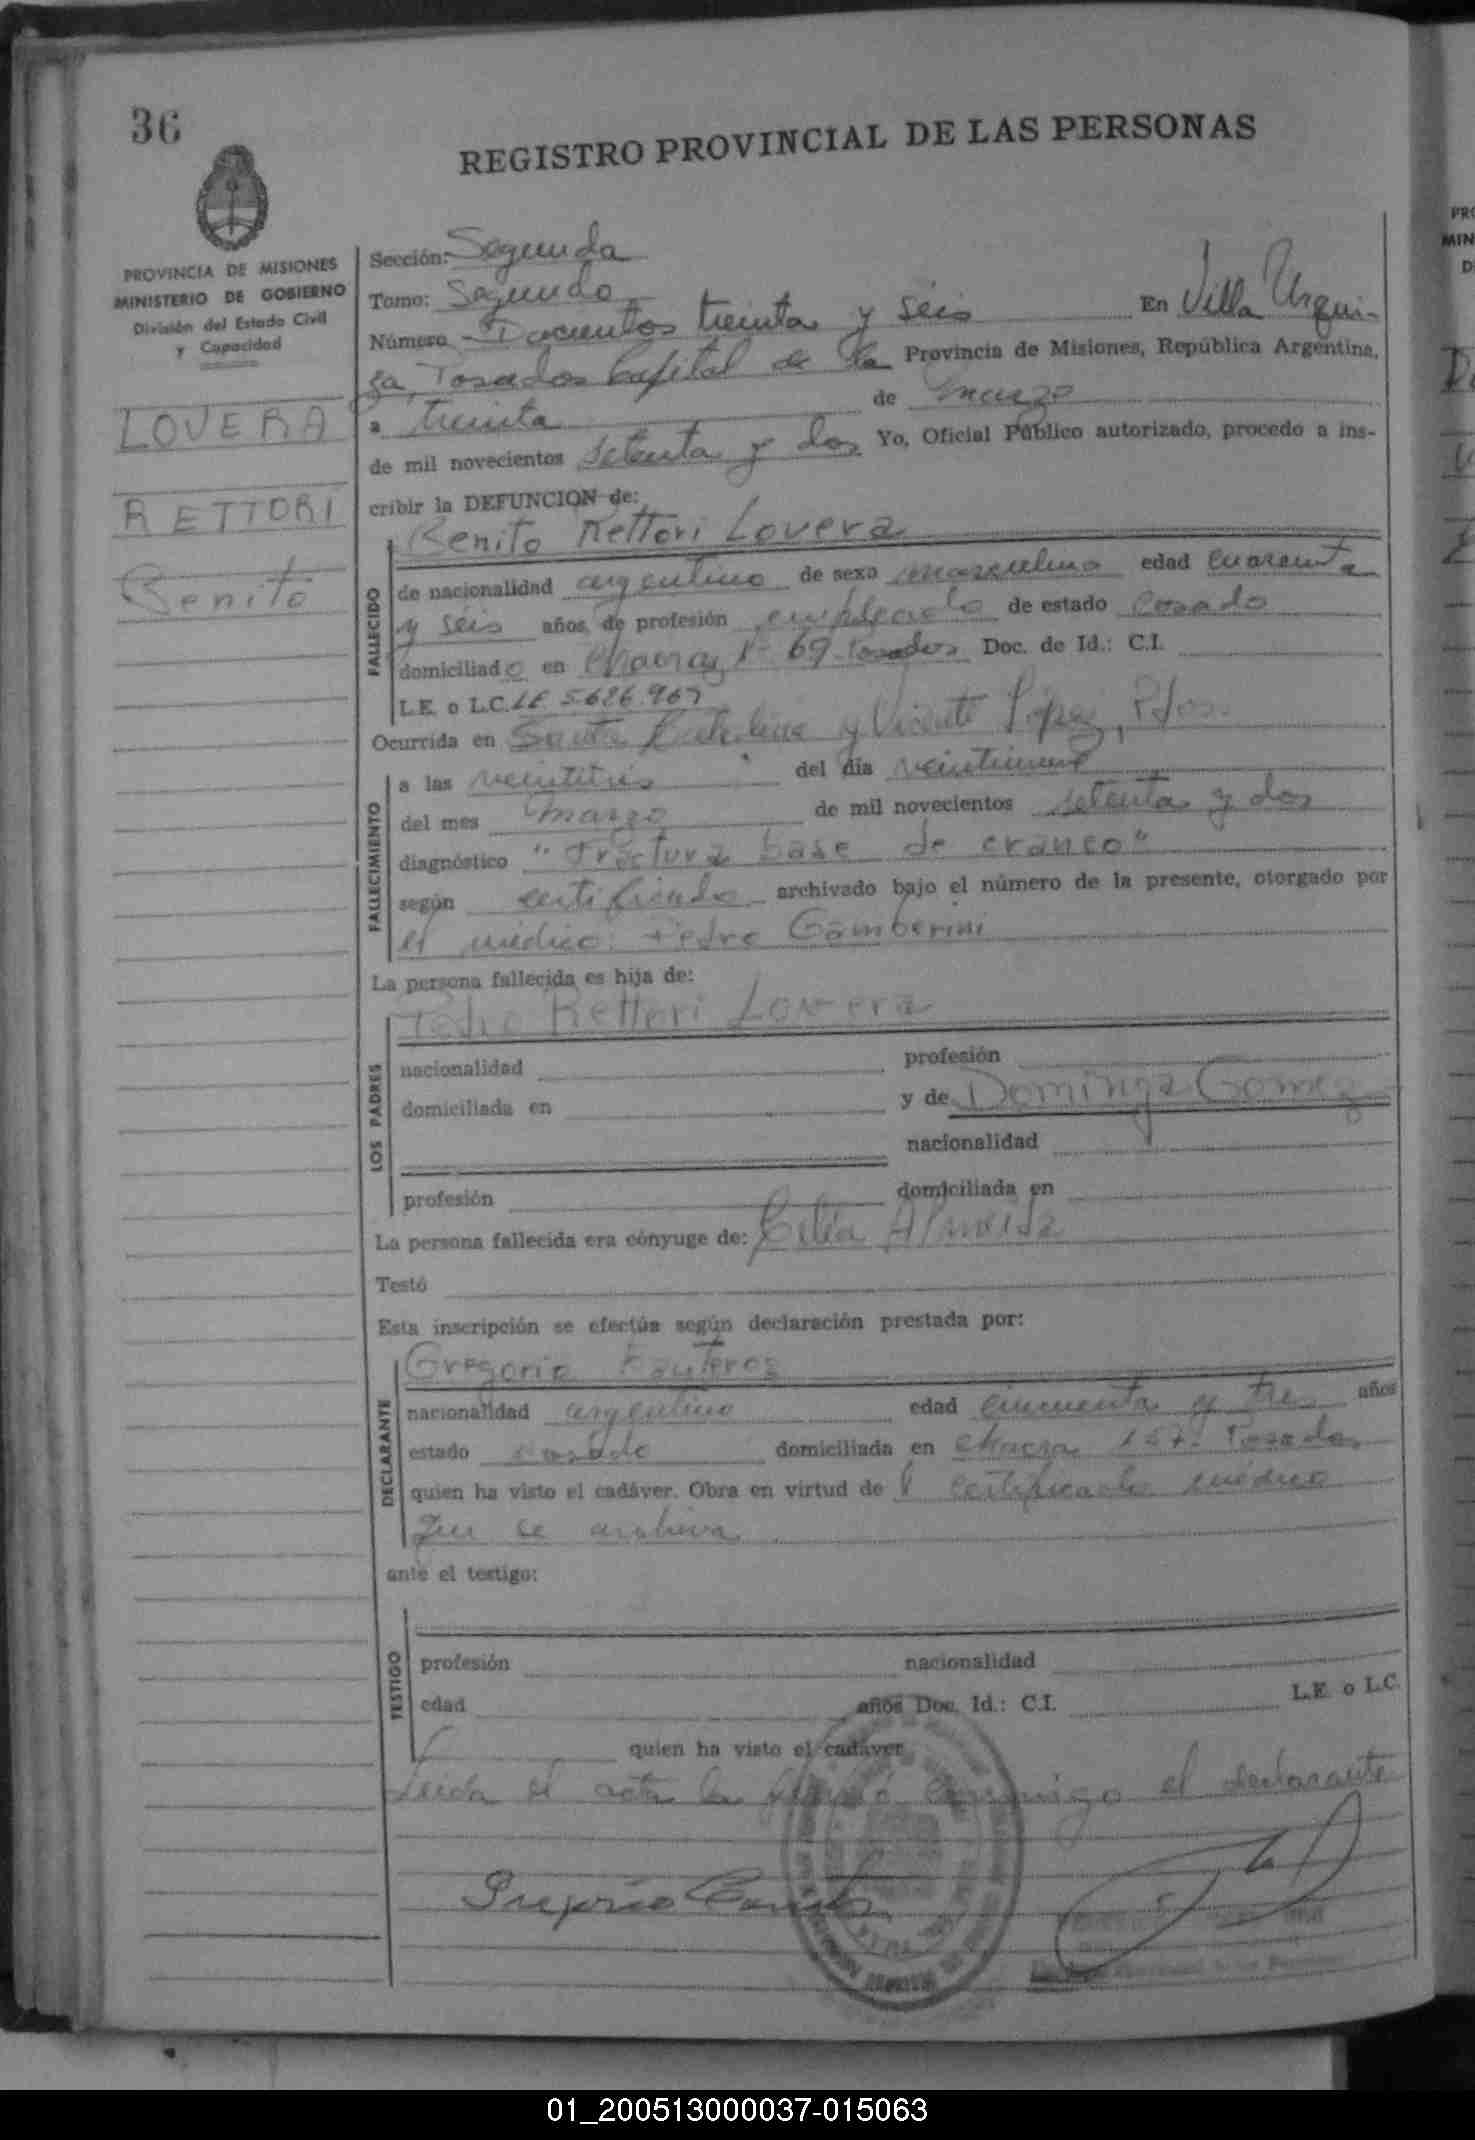 36
REGISTRO PROVINCIAL DE LAS PERSONAS
PROVINCIA DE MISIONES
MINISTERIO DE GOBIERNO
División del Estado Civil
y Capacidad
LOVERA
RETTORI
Benito
Sección: Segunda
Tomo: Segundo
Número Doscientos treinta y seis En Villa Urqui-
za, Posadas Capital de la Provincia de Misiones, República Argentina,
a treinta de marzo
de mil novecientos setenta y dos Yo, Oficial Público autorizado, procedo a ins-
cribir la DEFUNCION de:
Benito Rettori Lovera
FALLECIDO
de nacionalidad argentino de sexo masculino edad cuarenta
y seis años, de profesión empleado de estado casado
domiciliado en Chacra 69 Posadas Doc. de Id.: C.I.
L.E. o L.C. LE 5.686.967
Ocurrida en Santa Catalina y Vicente López, Pdas.
FALLECIMIENTO
a las veintitrés del día veintinueve
del mes marzo de mil novecientos setenta y dos
diagnóstico "Fractura base de craneo"
según certificado archivado bajo el número de la presente, otorgado por
el médico: Pedro Gamberini
La persona fallecida es hija de:
Pedro Rettori Lovera
LOS PADRES
nacionalidad profesión
domiciliada en y de Dominga Gomez
nacionalidad
profesión domiciliada en
La persona fallecida era cónyuge de: Celia Almeida
Testó
Esta inscripción se efectúa según declaración prestada por:
Gregorio
DECLARANTE
nacionalidad argentino edad cincuenta y tres años
estado casado domiciliada en chacra 157 Posadas
quien ha visto el cadáver. Obra en virtud de l certificado médico
que se archiva
ante el testigo:
TESTIGO
profesión nacionalidad
edad años Doc. Id.: C.I. L.E. o L.C.
quien ha visto el cadáver
Leida el acta la firmó conmigo el declarante
01_200513000037-015063